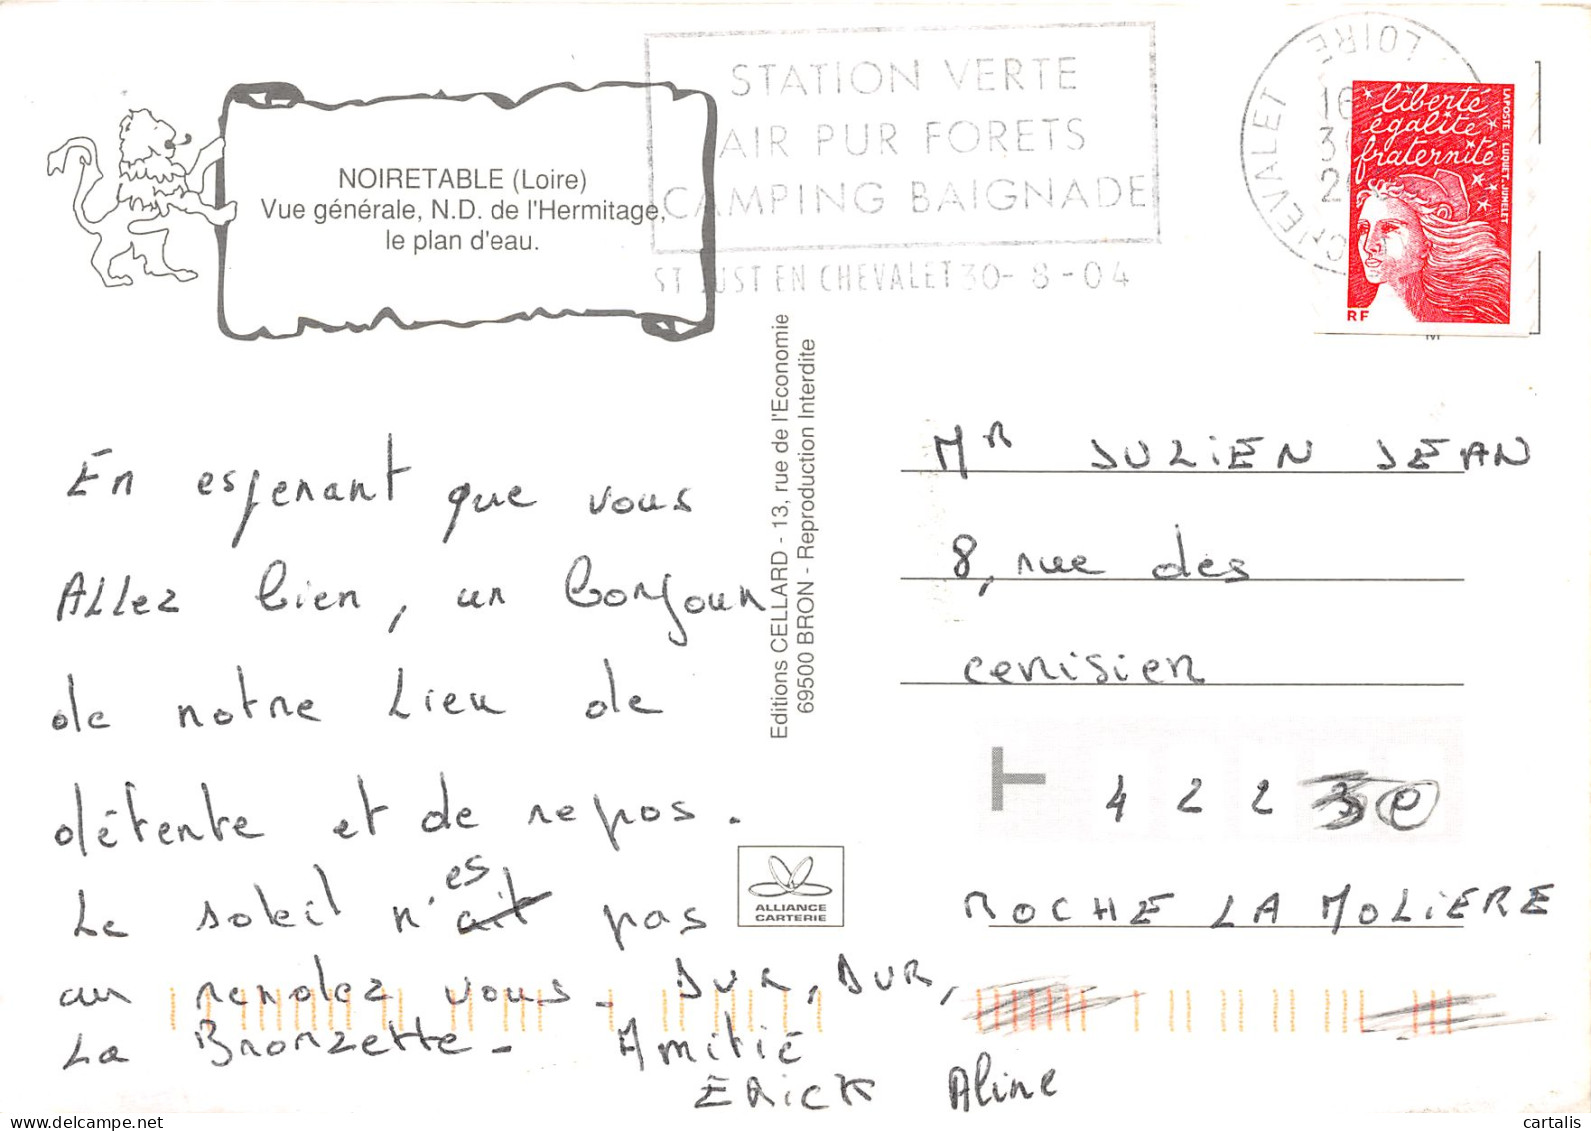 NOIRETABLE (Loire)
Vue générale, N.D. de l'Hermitage,
le plan d'eau.
STATION VERTE
AIR PUR FORETS
CAMPING BAIGNADE
ST JUST EN CHEVALET 30-8-04
CHEVALET LOIRE
liberté
égalité
fraternité
LAPOSTE LUQUET-JUMELET
RF
Editions CELLARD - 13, rue de l'Economie
69500 BRON - Reproduction Interdite
En esperant que vous
Allez bien, un bonjour
de notre lieu de
détente et de repos.
es
Le soleil n'ait pas
au rendez vous. DUR, DUR,
La Bronzette. Amitié
ERick Aline
Mr JULiEN JEAN
8, rue des
cerisier
4 2 2 3 0
ROCHE LA MOLiERE
ALLIANCE
CARTERIE
cartalis